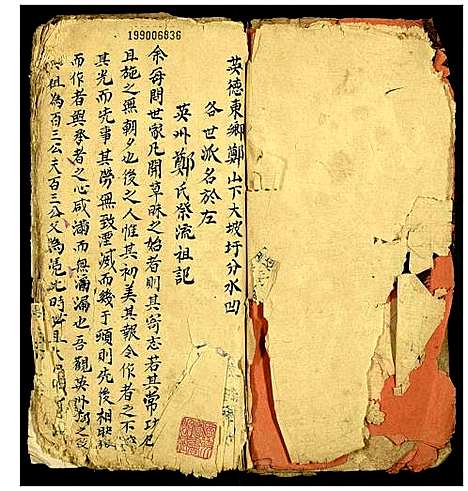 199006836
英德東鄉鄭山下大坡圩分水凹
各世派名於左
英州鄭氏榮流祖記
余每問世家凡開草昧之始者則其寄志若其常功也
且施之無朝夕也後之人惟其初美其報令作者之不
其光而先事其勞無致湮滅而幾于頑則先後相
而作者與承者之心咸滿而無漏漏也吾觀英州鄭之
祖為百三公夫百三公又為